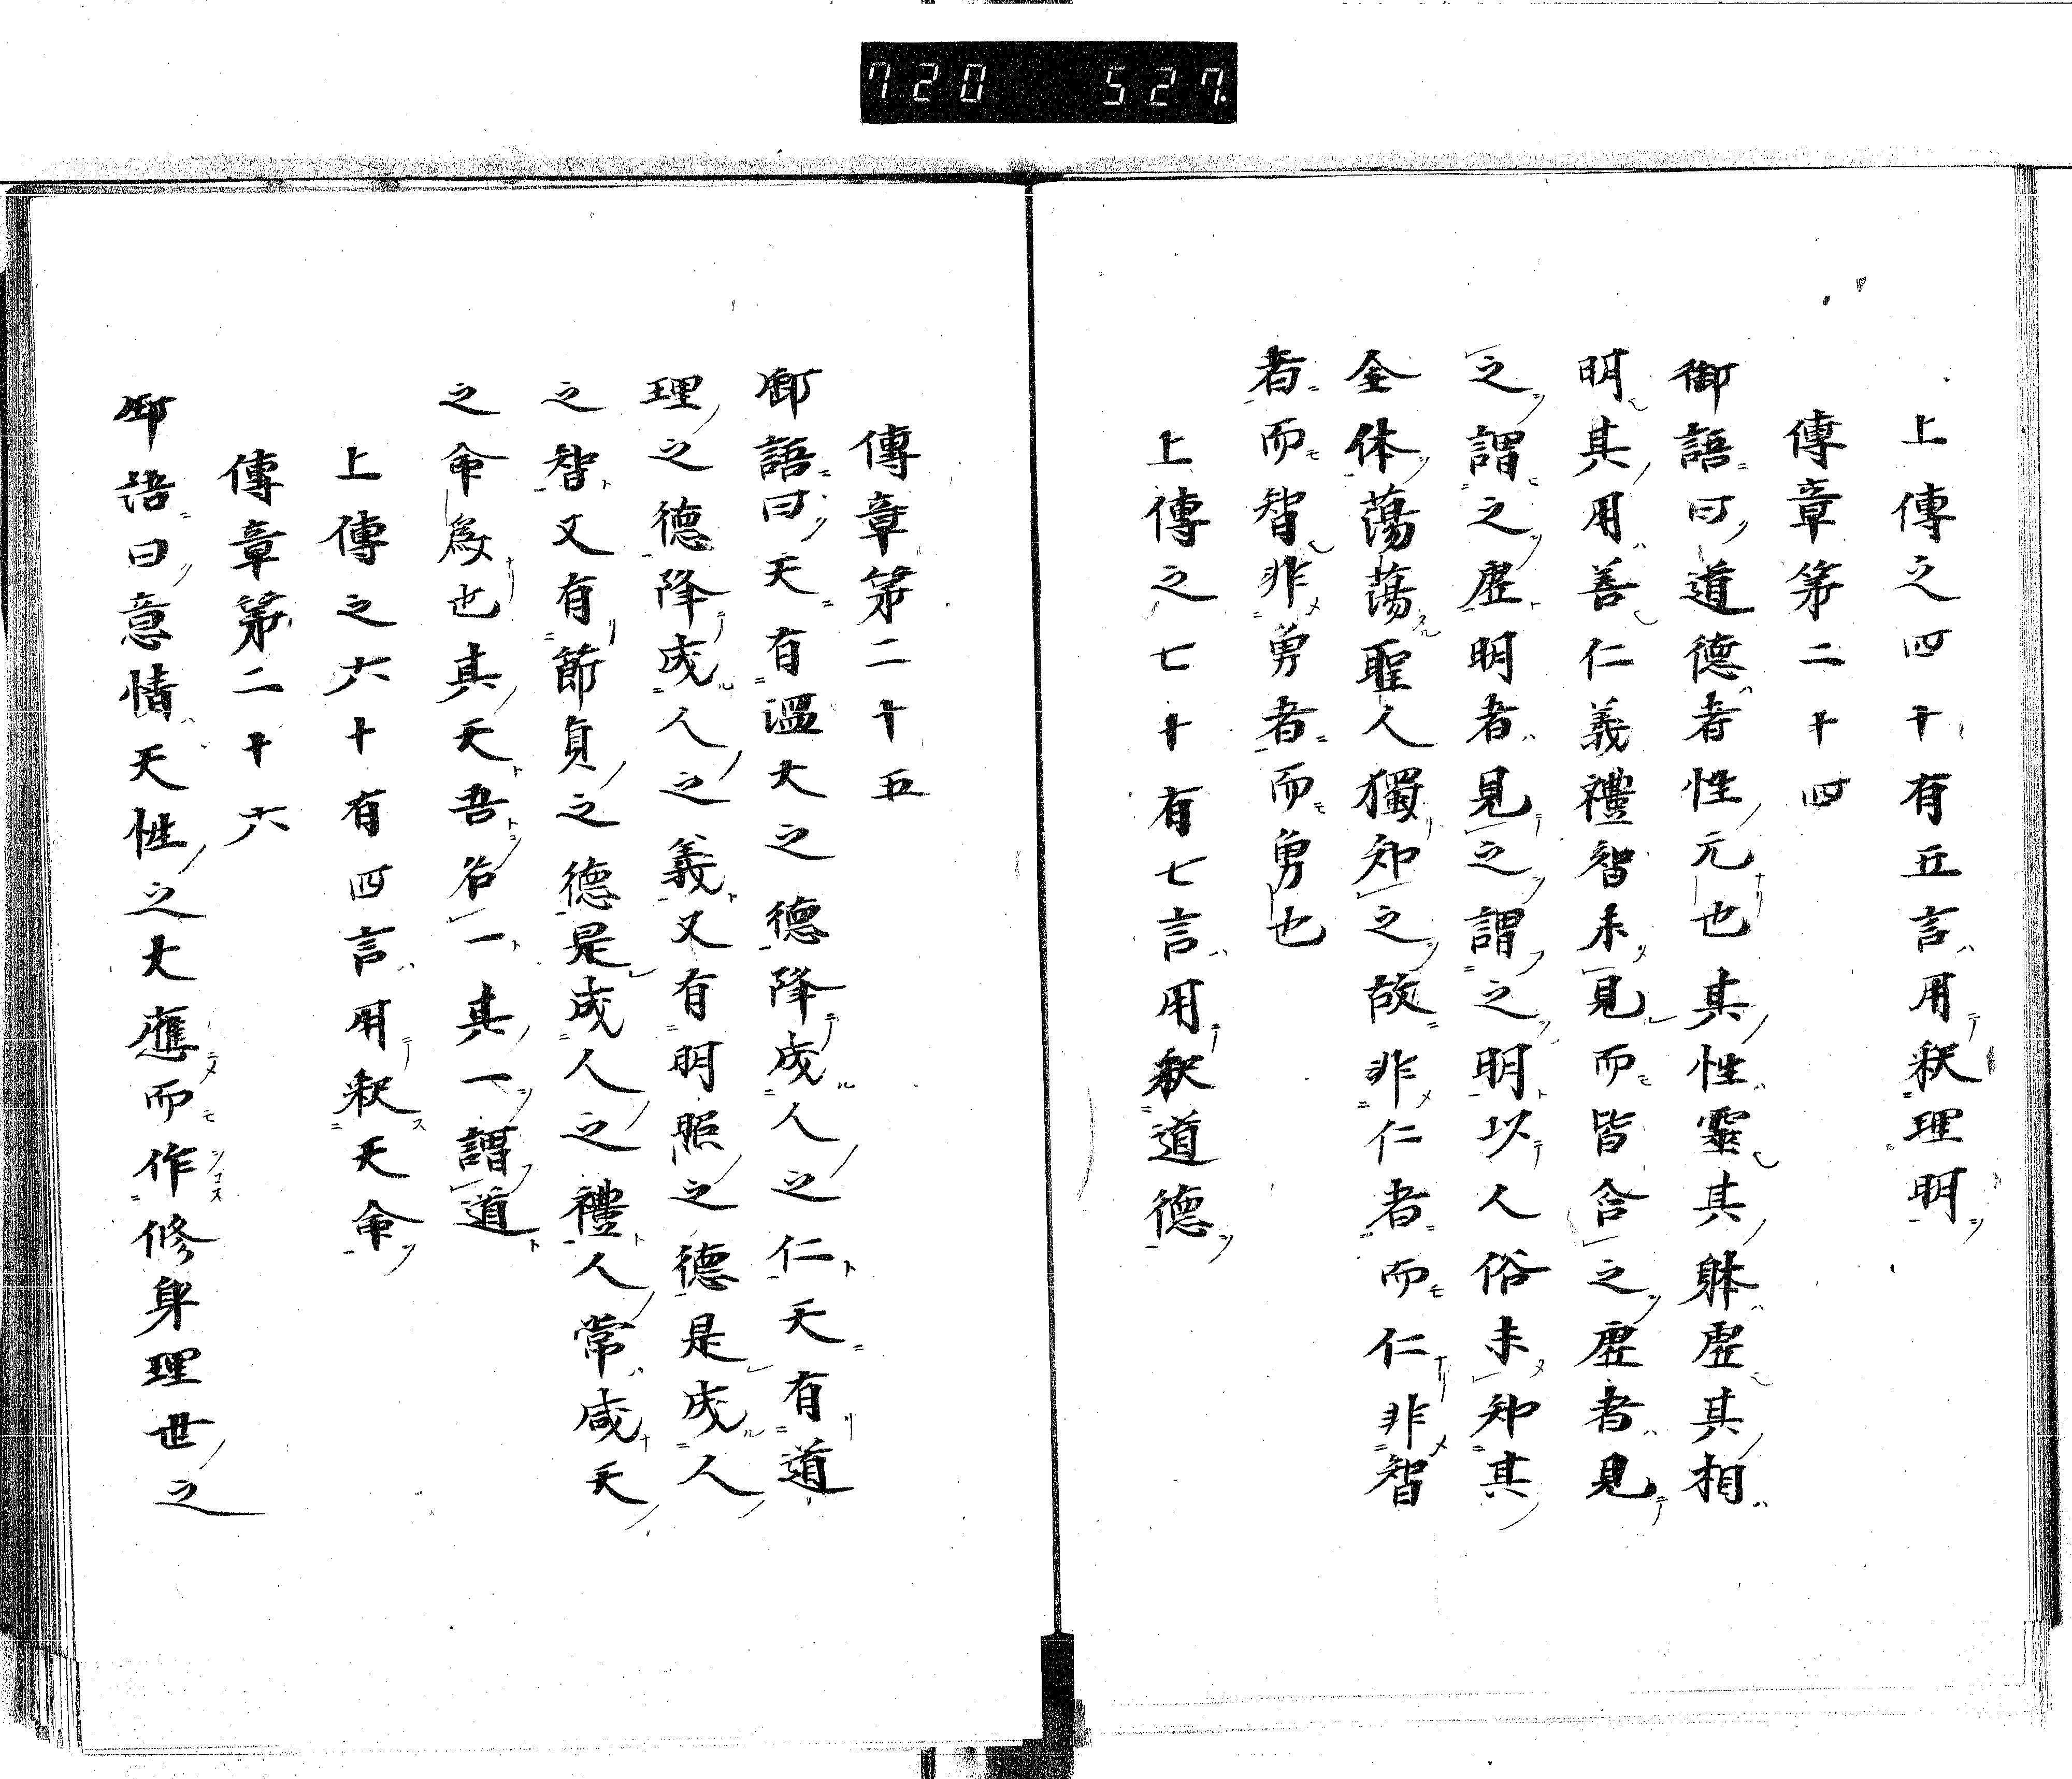 720 527.
上傳之四十有五言用釈理明
傳章第二十四
御語曰道德者性元也其性靈其躰虚其相
明其用善仁義禮智未見而皆含之虚者見
之謂之虚明者見之謂之明以人俗未知其
全体蕩蕩聖人獨知之故非仁者而仁非智
者而智非勇者而勇也
上傳之七十有七言用釈道德
傳章第二十五
御語曰天有溫大之德降成人之仁天有道
理之德降成人之義又有明照之德是成人
之智又有節貞之德是成人之禮人常咸天
之命為也其天吾名一其一謂道
上傳之六十有四言用釈天命
傳章第二十六
御語曰意情天性之大應而作修身理世之